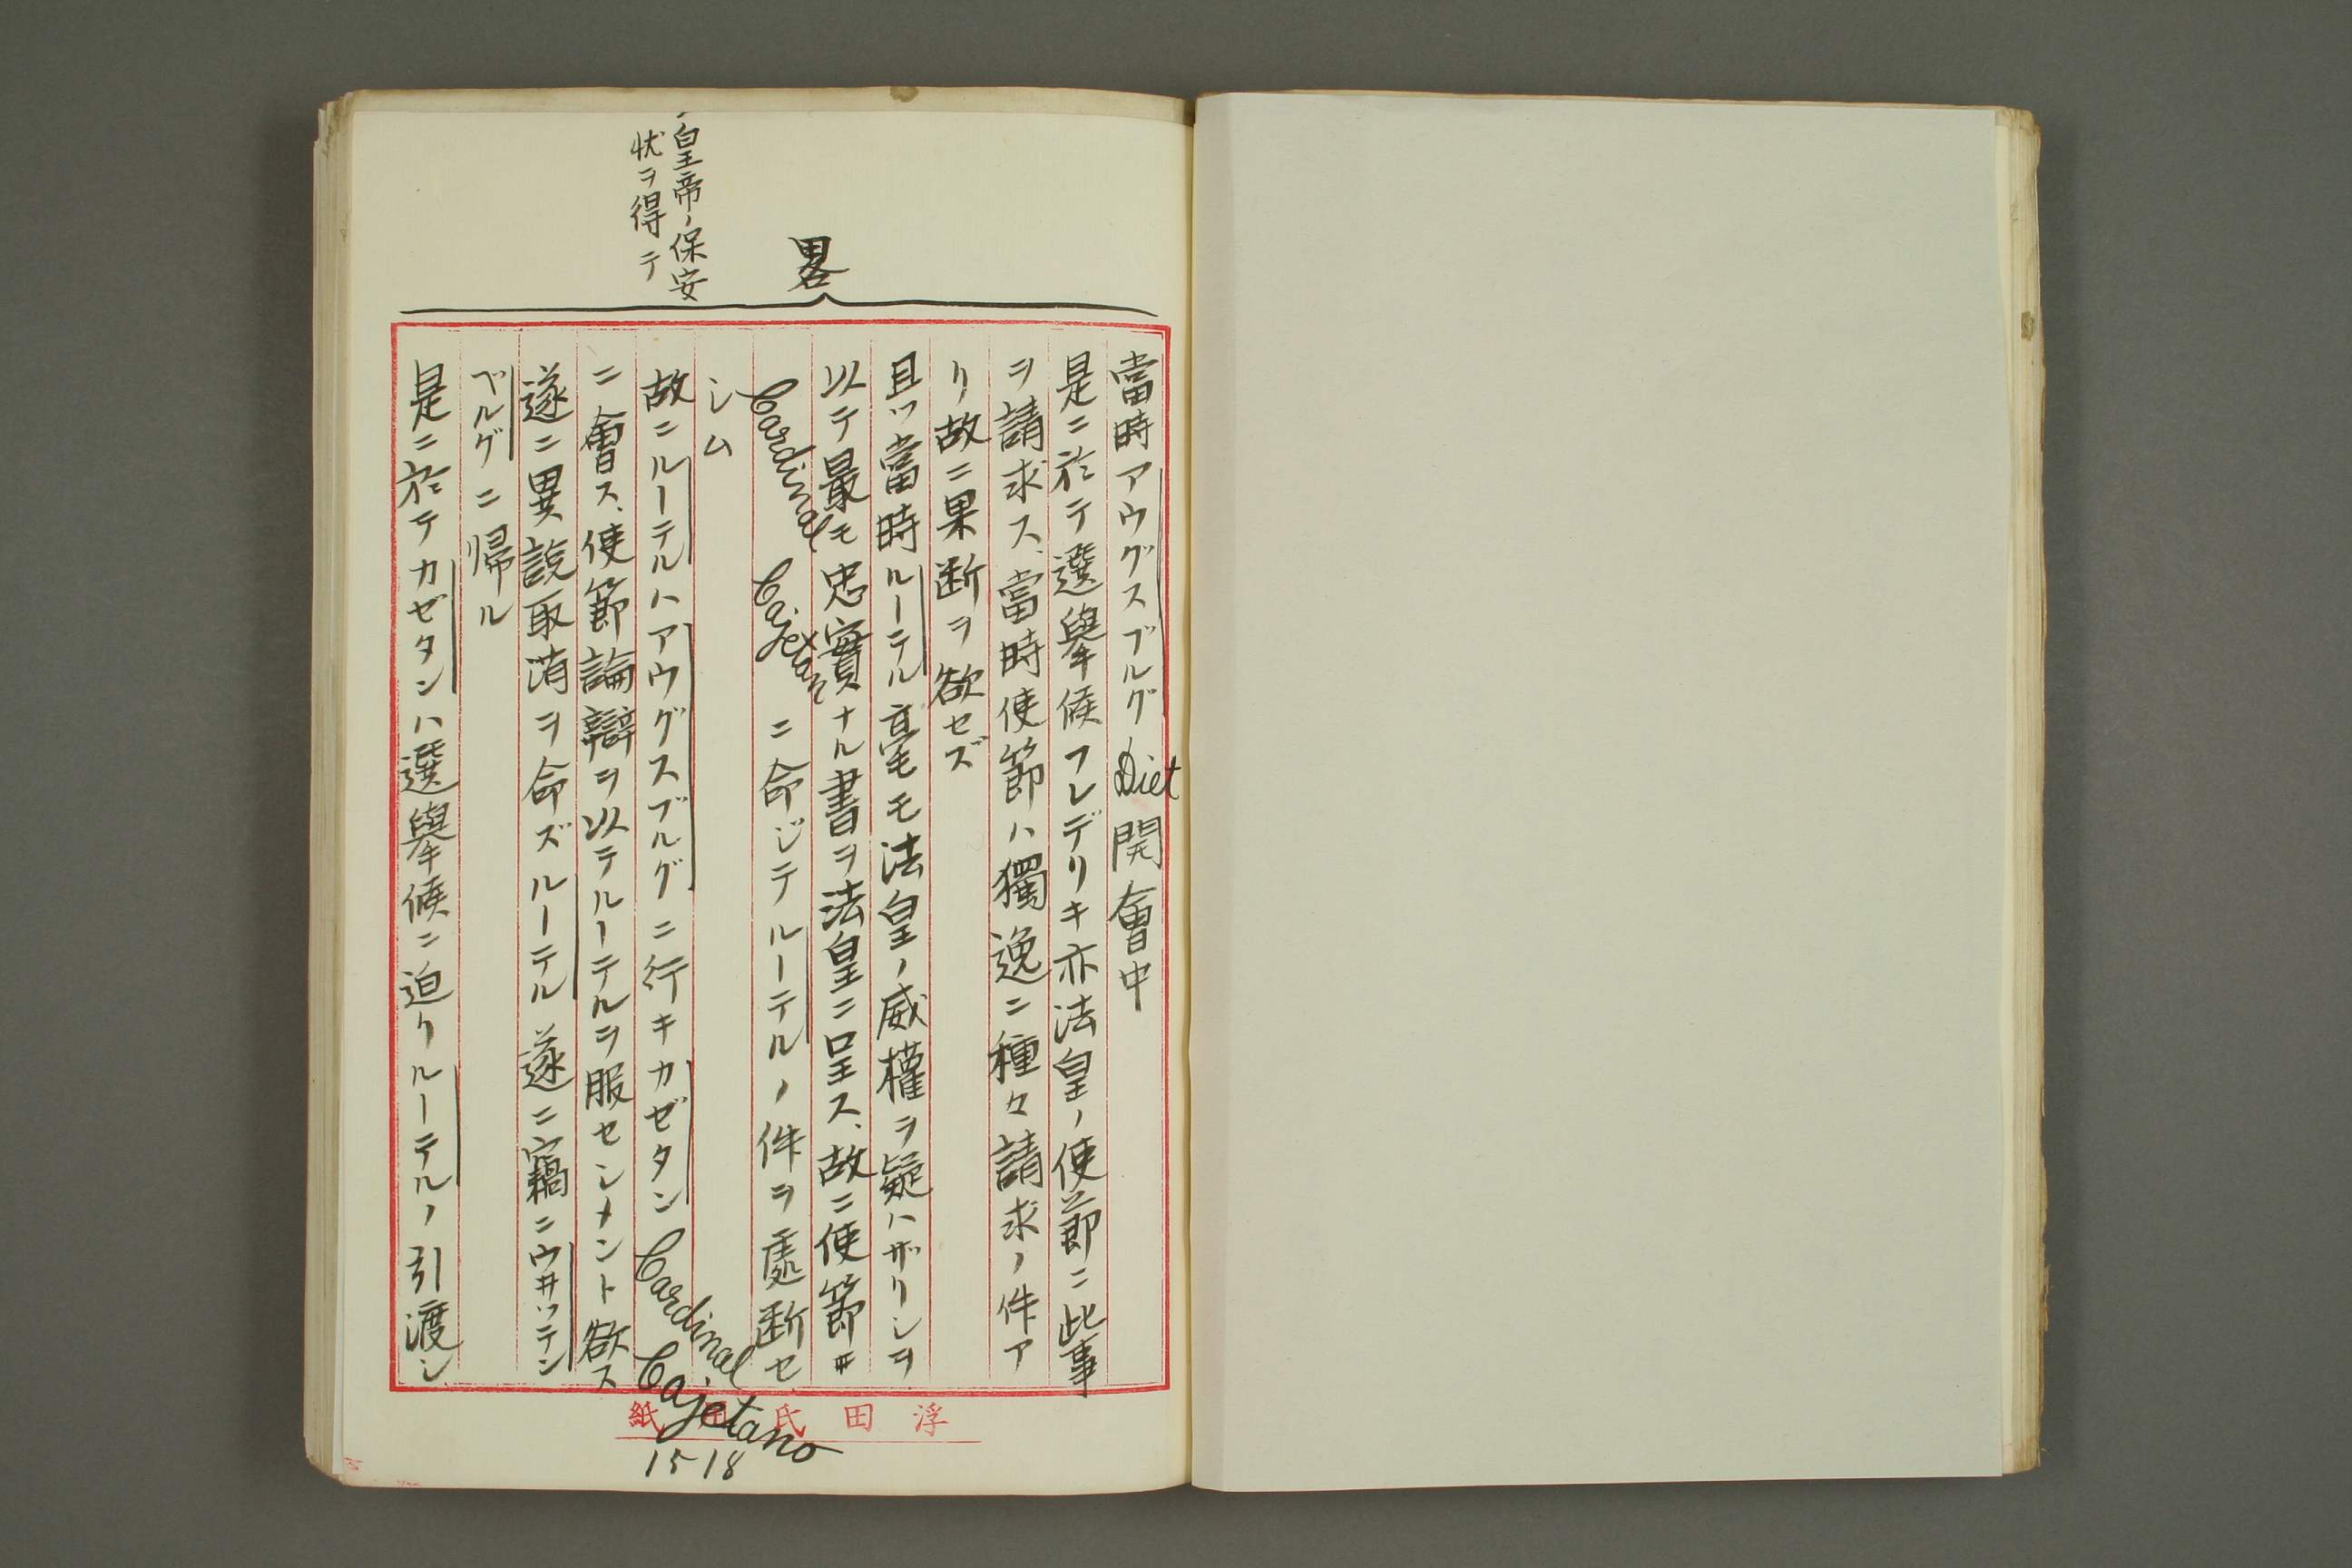 畧
皇帝ノ保安
状ヲ得テ
當時アウグスブルグ Diet 開會中
是ニ於テ選擧候フレデリキ亦法皇ノ使節ニ此事
ヲ請求ス、當時使節ハ獨逸ニ種々請求ノ件ア
リ故ニ果断ヲ欲セズ
且ツ當時ルーテル毫モ法皇ノ威權ヲ疑ハザリシヲ
以テ最モ忠實ナル書ヲ法皇ニ呈ス、故ニ使節
Cardinal Cajetan ニ命ジテルーテルノ件ヲ處断セ
シム
故ニルーテルハアウグスブルグニ行キカゼタン Cardinal Cajetano 1518
ニ會ス、使節論辯ヲ以テルーテルヲ服セシメント欲ス
遂ニ異説取消ヲ命ズルーテル遂ニ竊ニウ井ッテン
ベルグニ帰ル
是ニ於テカゼタンハ選擧候ニ迫リルーテルノ引渡シ
浮田氏用紙